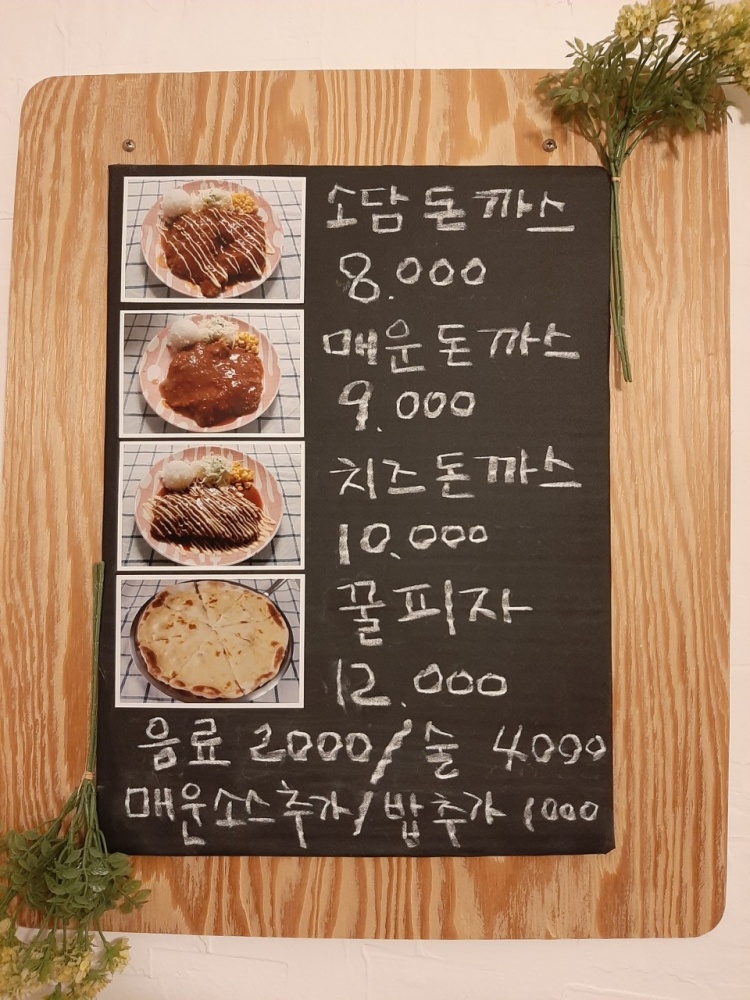 소담돈까스
8.000
매운돈까스
9.000
치즈돈까스
10.000
꿀피자
12.000
음료 2000/술 4000
매운소스추가/밥추가 1000